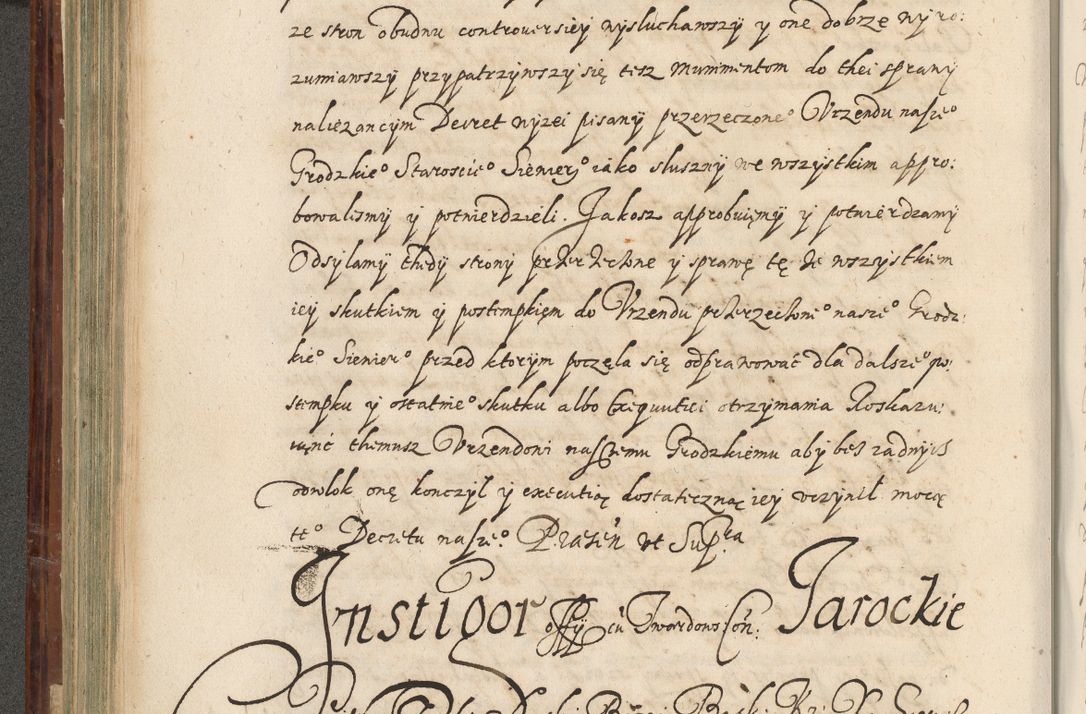 ze stron obudwu controuersiey wysłuchawszy y one dobrze wyro:
zumiawszy przypatrzywszy się tesz Munimentom do thei sprawy
nalezancym Decret wyzei pisany przerzeczone⁰ Vrzendu nasze⁰
Grodzkie⁰ Staroscie⁰ Siewier⁰ iako sluszny we wszystkim appro:
bowalismy y potwierdzieli. Jakosz approbuiemy y potwierdzamy
Odsylamy thedy strony przerzeczone y sprawę tę ze wszystkiem
iey skutkiem y postempkiem do Vrzendu przerzeczone⁰ nasze⁰ Grodz:
kie⁰ Siewier⁰ przed ktorym poczęla się odprawować dla dalsze⁰ po:
stempku y ostatnie⁰ skutku albo Exequutiei otrzymania Roskazu:
iąnć themusz Vrzendowi naszemu Grodzkiemu aby bes zadnych
odwlok onę konczyl y executią dostateczną iey vczynil mocą
te⁰ Decretu nasze⁰. Præsen ut Supra
Instigor officii Twardowscon: Jarockie